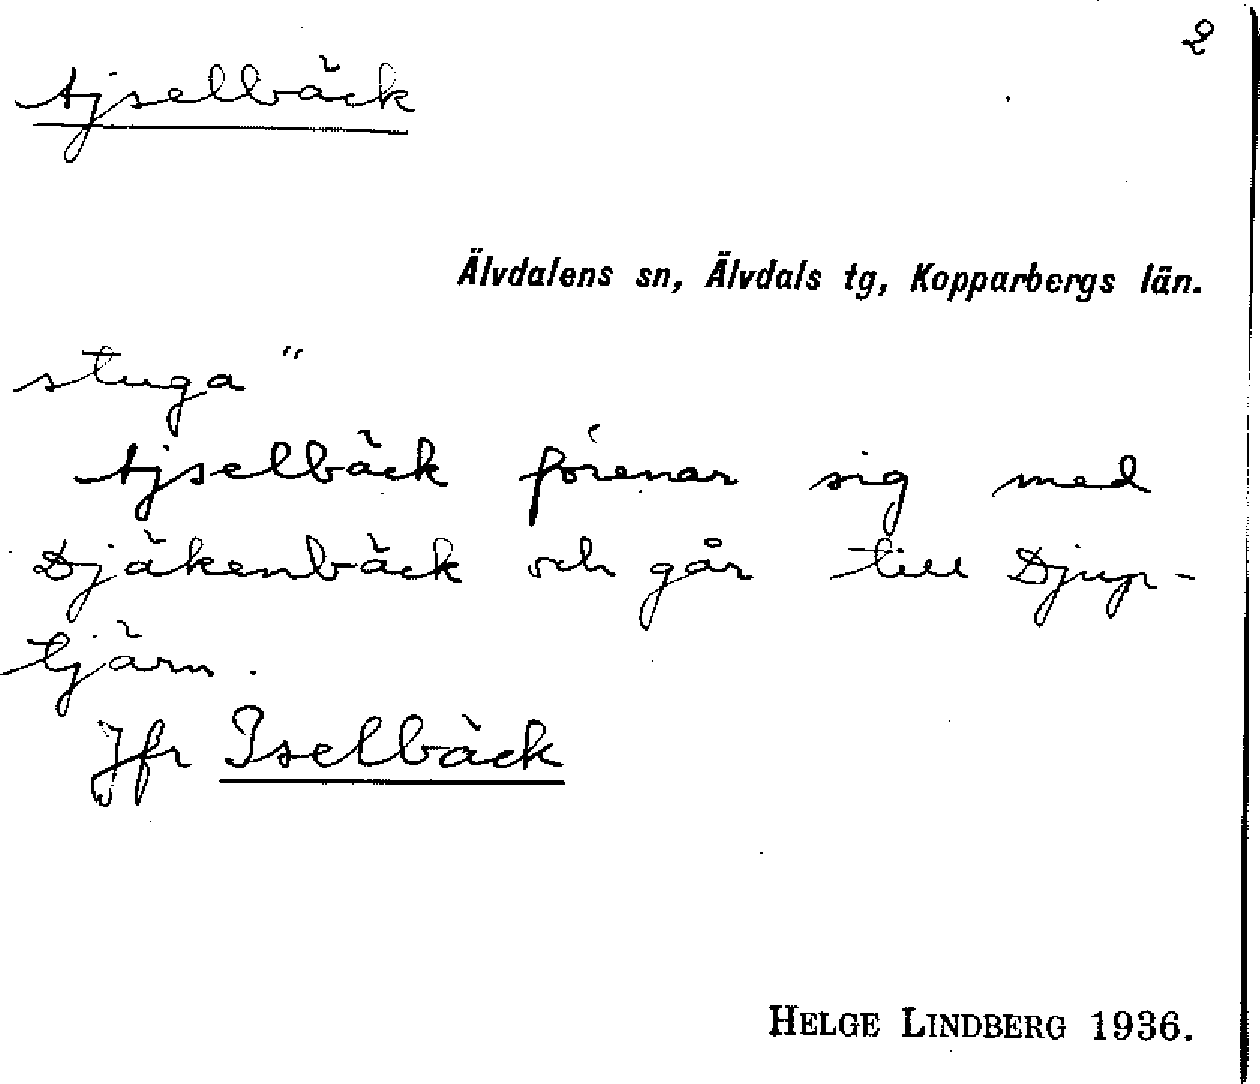 2
tjselbäck
Älvdalens sn, Älvdals tg, Kopparbergs län.
stuga"
tjselbäck förenar sig med
Djäkenbäck och går till Djup-
tjärn.
Jfr Iselbäck
HELGE LINDBERG 1936.